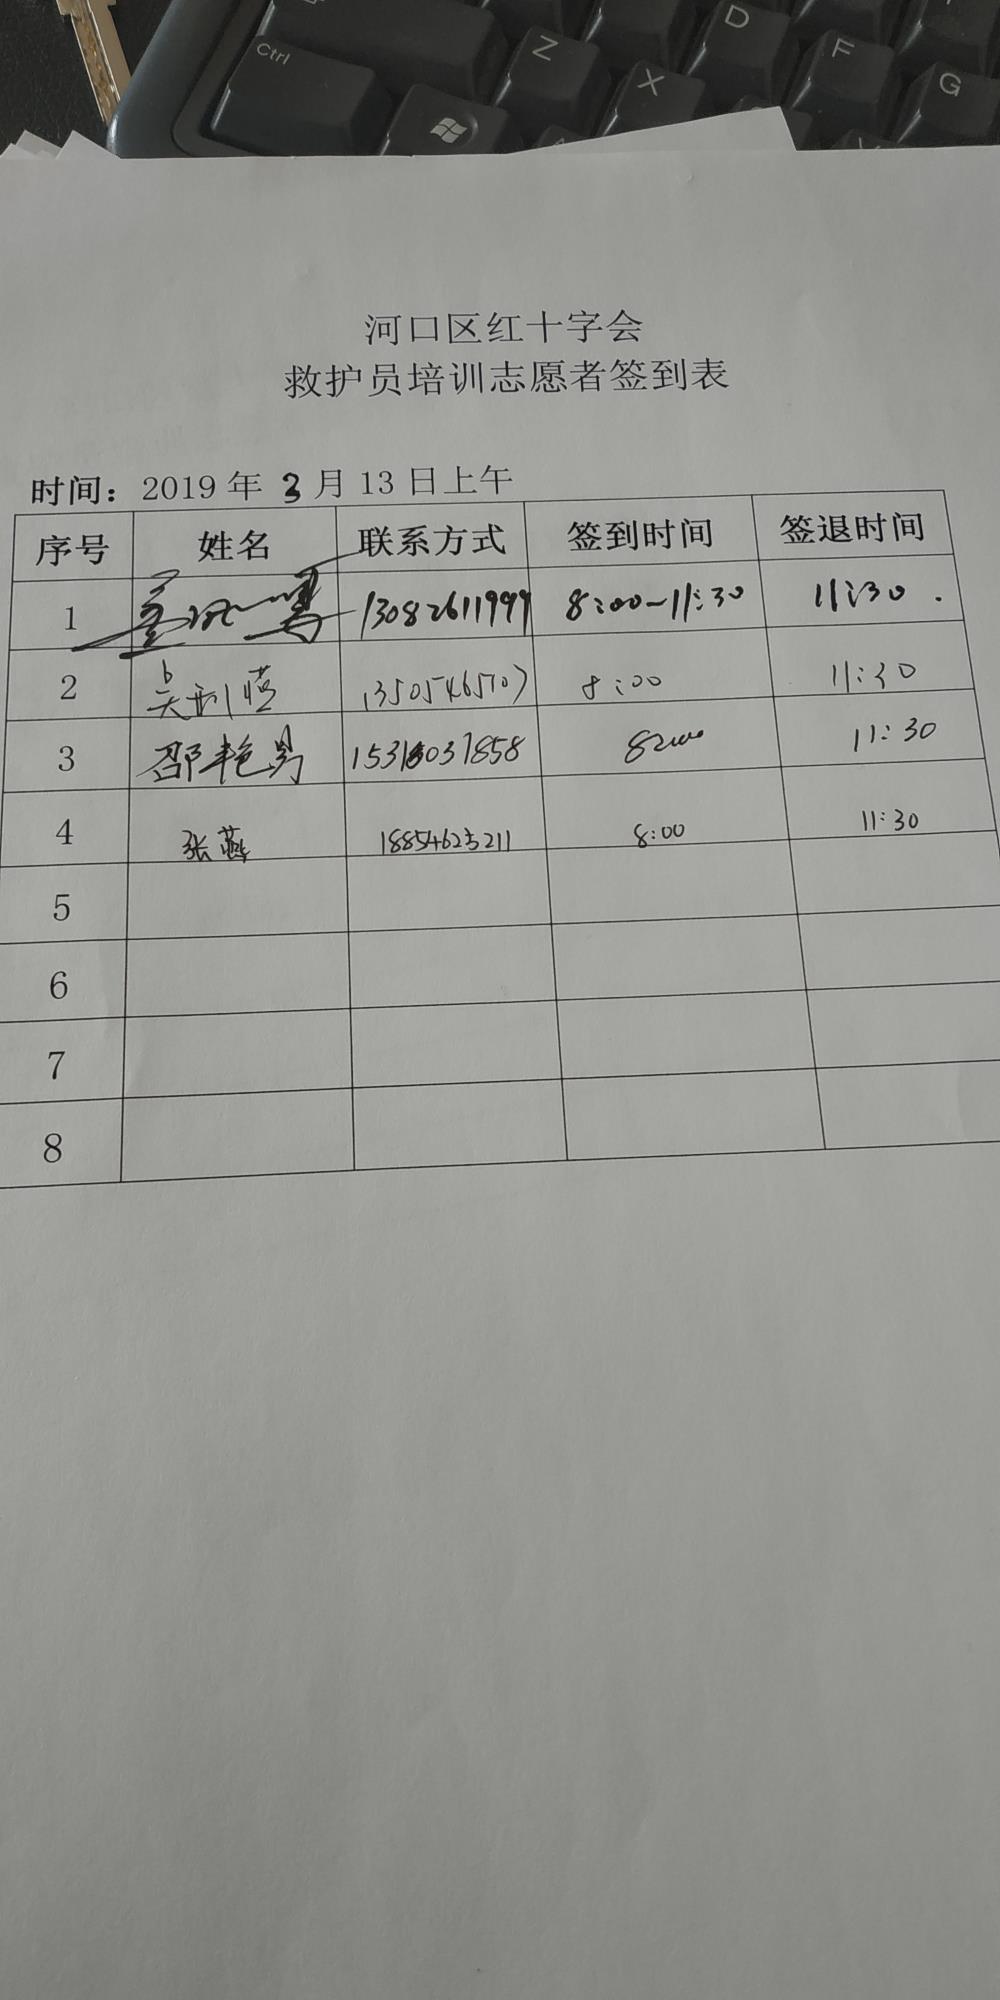 Ctrl
Z
X
D
F
G
河口区红十字会
救护员培训志愿者签到表
时间：2019 年 3 月 13 日上午
序号 姓名 联系方式 签到时间 签退时间
1 13082611999 8:00-11:30 11:30.
2 8:00 11:30
3 邵艳男 11:30
4 张燕 18854625211 8:00 11:30
5
6
7
8